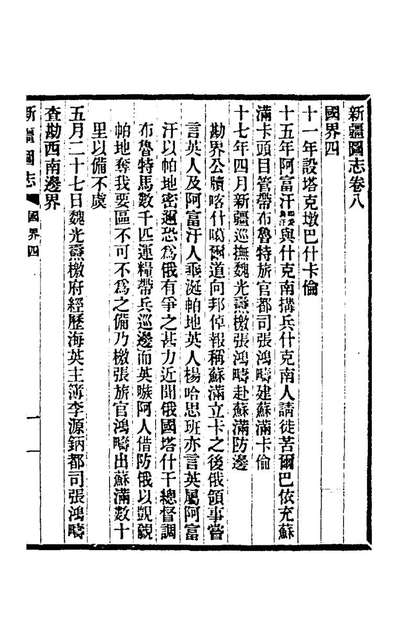 新疆圖志卷八
國界四
十一年設塔克墩巴什卡倫
十五年阿富汗與什克南搆兵什克南人請徙苦爾巴依充蘇
滿卡頭目管帶布魯特旅官都司張鴻疇建蘇滿卡倫
十七年四月新疆巡撫魏光燾檄張鴻疇赴蘇滿防邊
勘界公牘喀什噶爾道向邦倬報稱蘇滿立卡之後俄領事嘗
言英人及阿富汗人乘涎帕地英人楊哈思班亦言英屬阿富
汗以帕地密邇恐爲俄有爭之甚力近聞俄國塔什干總督調
布魯特馬數千匹運糧帶兵巡邊而英嗾阿人借防俄以覬覦
帕地奪我要區不可不爲之備乃檄張旅官鴻疇出蘇滿數十
里以備不虞
五月二十七日魏光燾檄府經歷海英主簿李源鈉都司張鴻疇
查勘西南邊界
新疆圖志
國界四
一